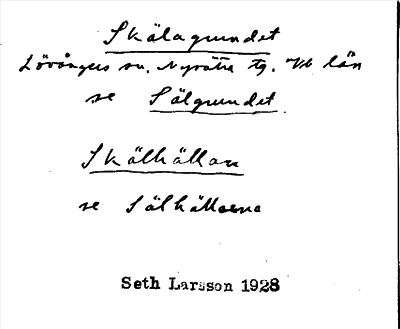 Skälagrundet
Lövångers sn. Nysätra tg. Vb län
se Sälgrundet
Skälhällan
se Sälhällorna
Seth Larsson 1928